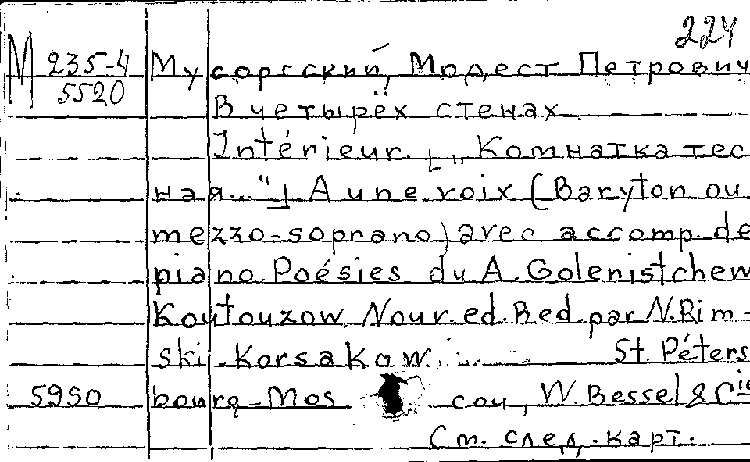 224
М 235-4 Мусоргский, Модест Петрович
5520 В четырёх стенах
Intérieur. [„Комнатка тес
ная..."] A une voix (Baryton ou
mezzo-soprano) avec accomp. de
piano Poésies du A. Golenistchew
Koutouzow Nouv. ed. Red. par N. Rim-
ski-Korsakow. St. Péters
5950 bourg-Mos cou, W. Bessel & Cie
См. след. карт.